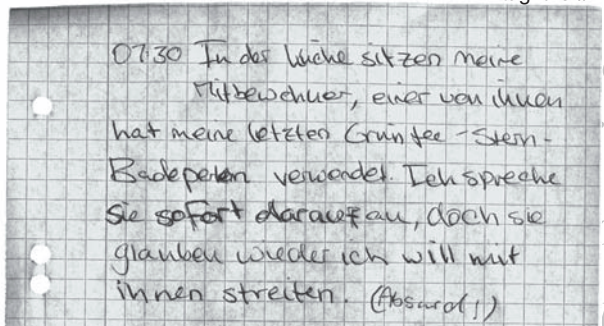 07:30 In der Küche sitzen meine
Mitbewohner, einer von ihnen
hat meine letzten Grüntee-Stern-
Badeperlen verwendet. Ich spreche
sie sofort darauf an, doch sie
glauben wieder ich will mit
ihnen streiten. (Absurd!)